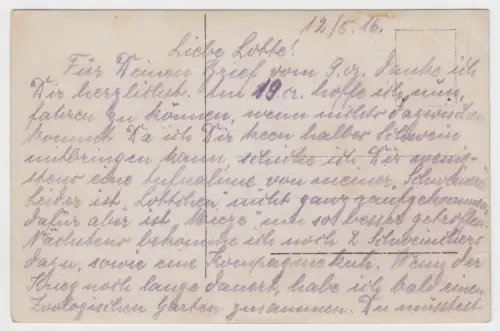 12/5. 16.
Liebe Lotte!
Für Deinen Brief vom 9. cr. danke ich
Dir herzlichst. Am 19 cr. hoffe ich nun,
fahren zu können, wenn nichts dazwischen
kommt. Da ich Dir kein halbes Schwein
mitbringen kann, schicke ich Dir wenig-
stens eine Aufnahme von meiner „Schweinerei“
Leider ist „Lottchen“ nicht ganz
dafür aber ist „Mieze“ um so besser getroffen.
Nächstens bekomme ich noch 2 Schweinchen
dazu, sowie eine Kompagniekuh. Wenn der
Krieg noch lange dauert, habe ich bald einen
Zoologischen Garten zusammen. Du müsstest